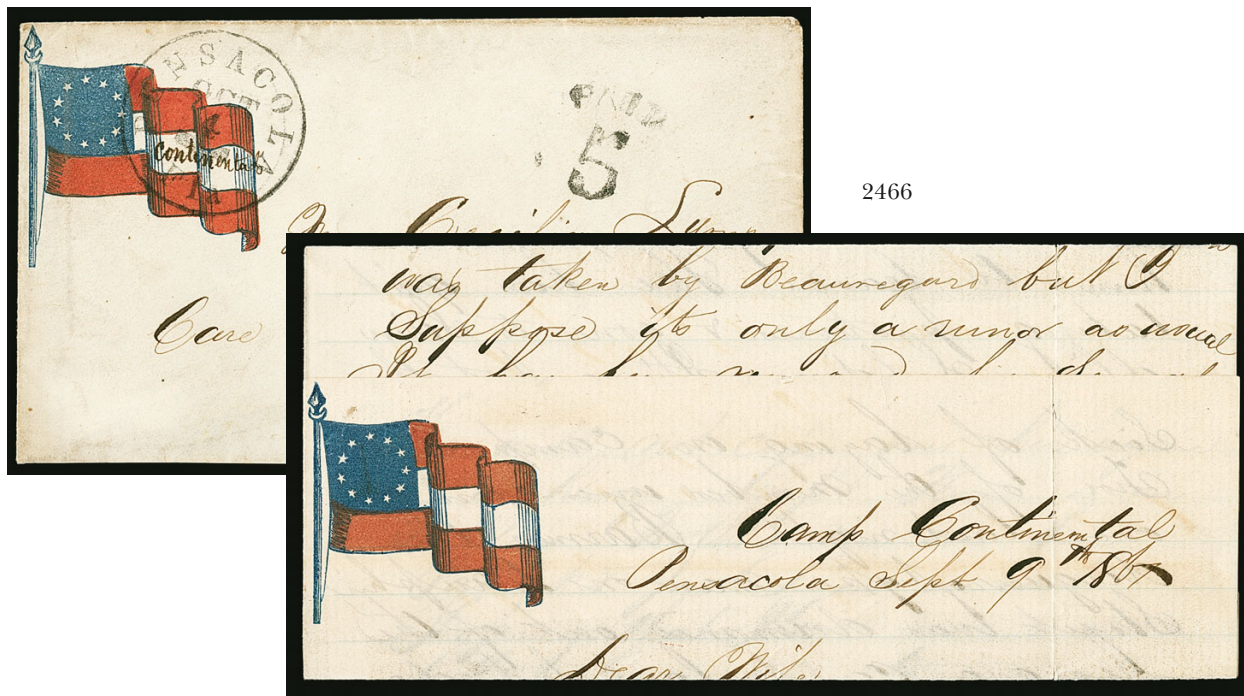 PENSACOLA
OCT
4
Continental
PAID
5
Care
2466
was taken by Beauregard but I
Suppose its only a rumor as usual
Camp Continental
Pensacola Sept 9th 1861
Dear Wife